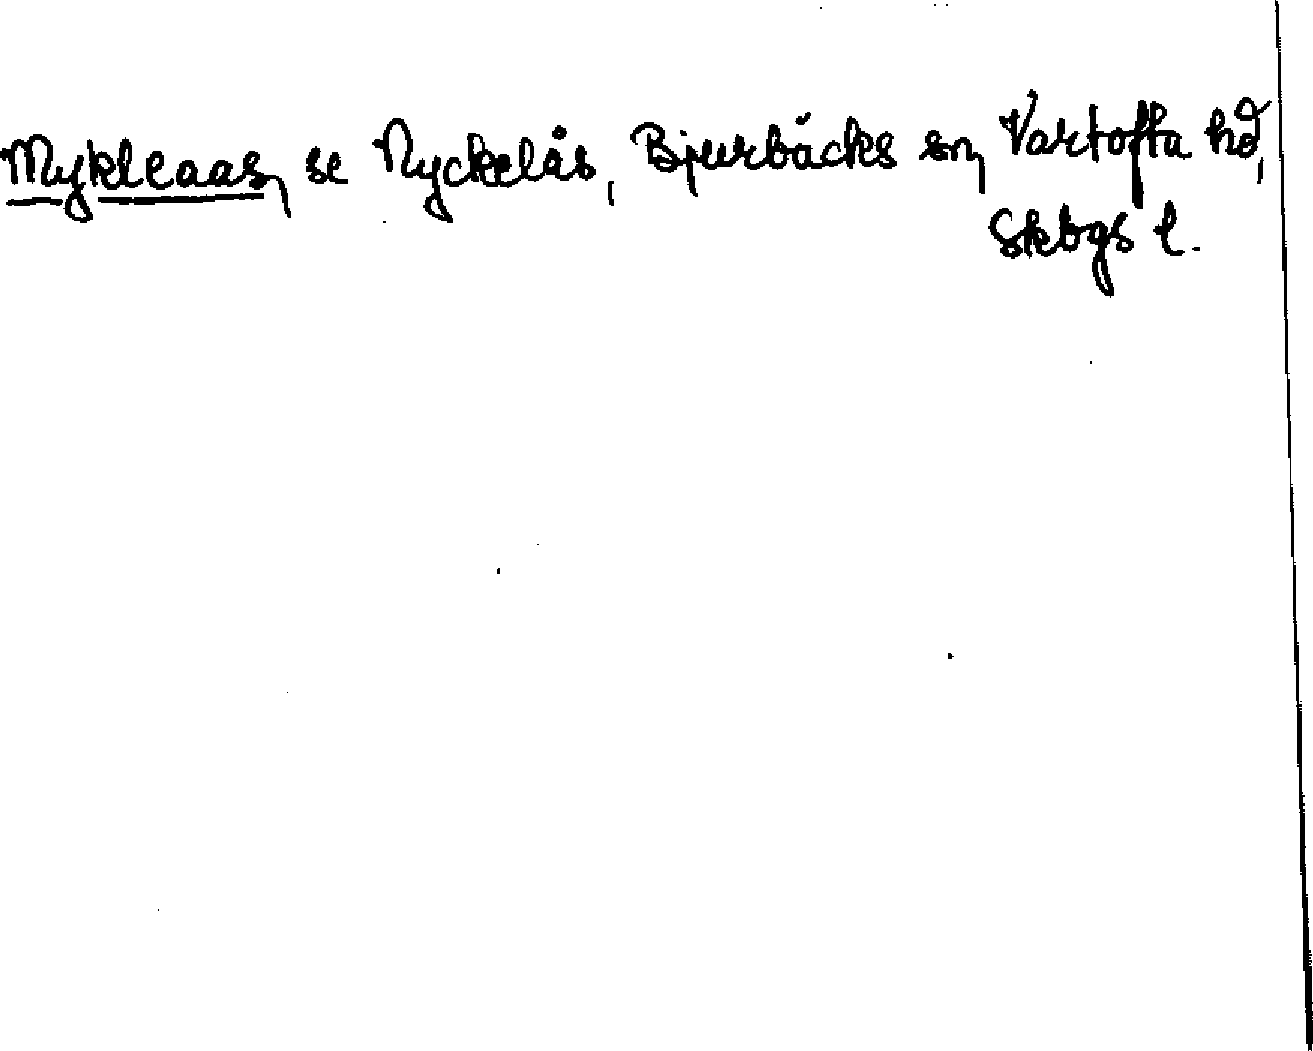 Mykleaas, se Nyckelås, Bjurbäcks sn, Vartofta hd,
Skbgs l.